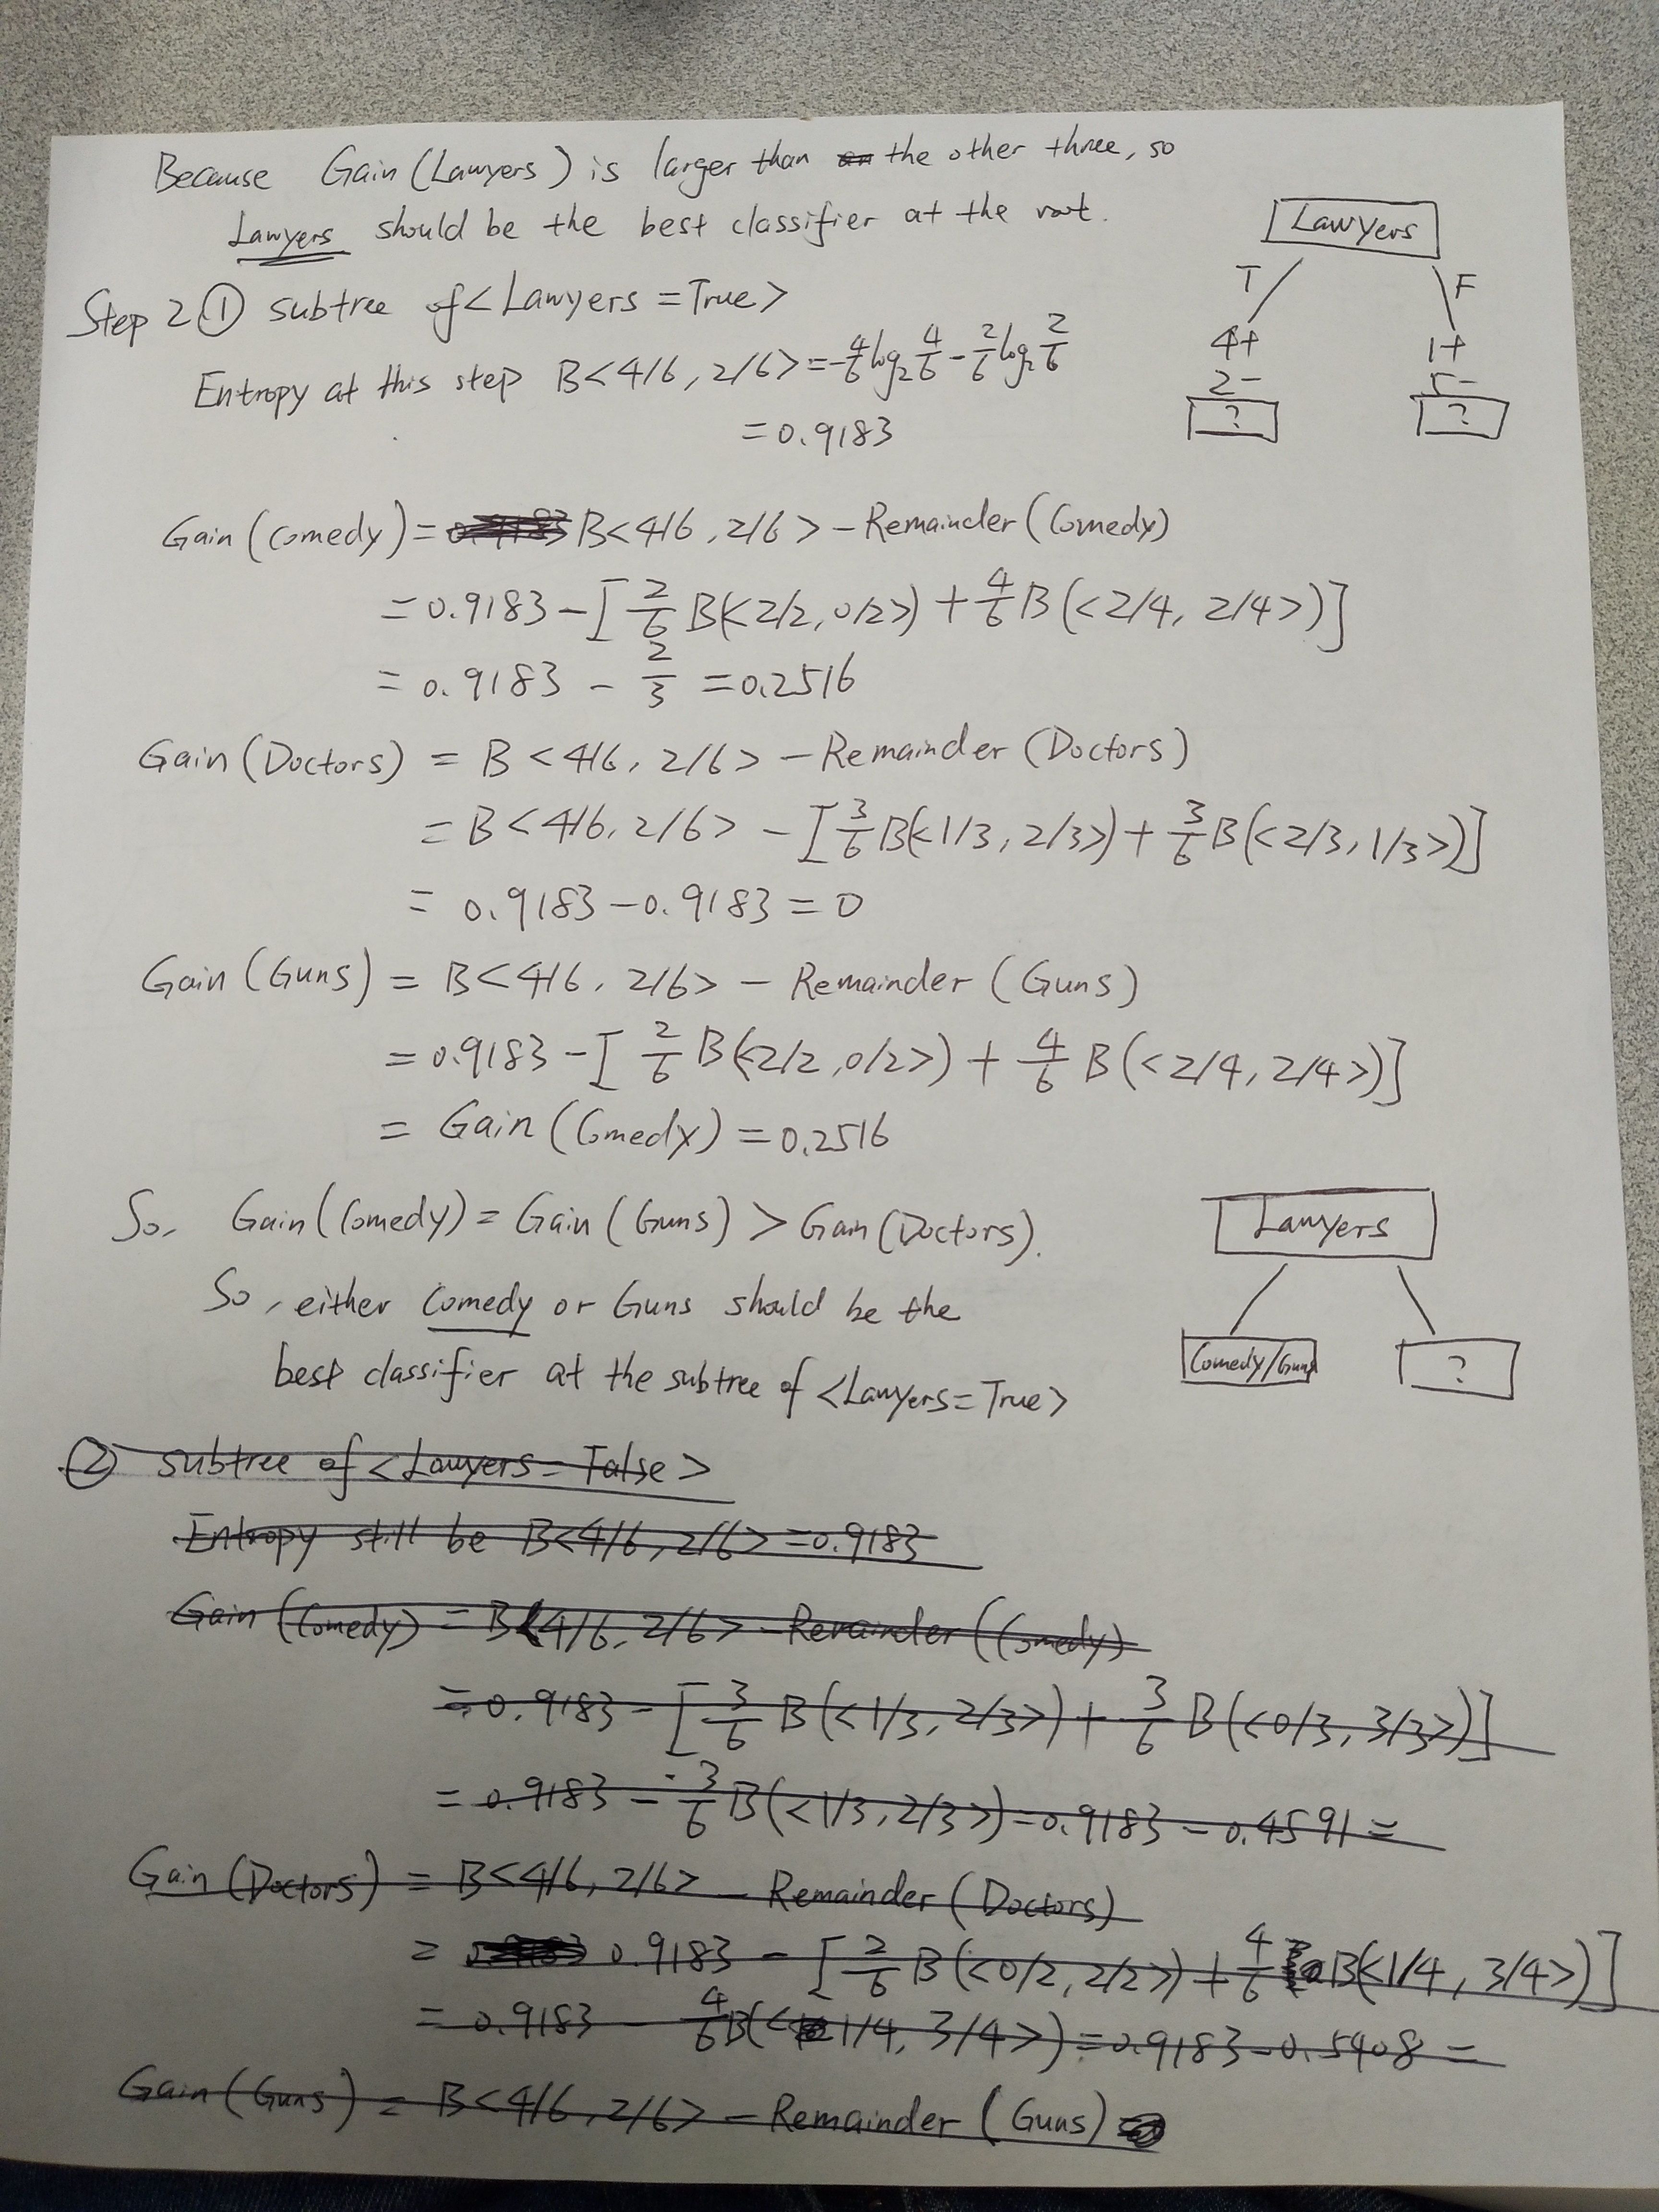 Because Gain (Lawyers) is larger than the other three, so
Lawyers should be the best classifier at the root.
Lawyers
T F
4+ 1+
2- 5-
? ?
Step 2 ① subtree of <Lawyers = True>
Entropy at this step B<4/6, 2/6> = -4/6 log₂ 4/6 - 2/6 log₂ 2/6
= 0.9183
Gain (Comedy) = 0.9183 B<4/6, 2/6> - Remainder (Comedy)
= 0.9183 - [2/6 B(<2/2, 0/2>) + 4/6 B(<2/4, 2/4>)]
= 0.9183 - 2/3 = 0.2516
Gain (Doctors) = B<4/6, 2/6> - Remainder (Doctors)
= B<4/6, 2/6> - [3/6 B(<1/3, 2/3>) + 3/6 B(<2/3, 1/3>)]
= 0.9183 - 0.9183 = 0
Gain (Guns) = B<4/6, 2/6> - Remainder (Guns)
= 0.9183 - [2/6 B(<2/2, 0/2>) + 4/6 B(<2/4, 2/4>)]
= Gain (Comedy) = 0.2516
So, Gain (Comedy) = Gain (Guns) > Gain (Doctors).
So, either Comedy or Guns should be the
best classifier at the subtree of <Lawyers = True>
Lawyers
Comedy/Guns ?
② subtree of <Lawyers = False>
Entropy still be B<4/6, 2/6> = 0.9183
Gain (Comedy) = B<4/6, 2/6> - Remainder (Comedy)
= 0.9183 - [3/6 B(<1/3, 2/3>) + 3/6 B(<0/3, 3/3>)]
= 0.9183 - 3/6 B(<1/3, 2/3>) = 0.9183 - 0.4591 =
Gain (Doctors) = B<4/6, 2/6> - Remainder (Doctors)
= 0.9183 - [2/6 B(<0/2, 2/2>) + 4/6 B(<1/4, 3/4>)]
= 0.9183 - 4/6 B(<1/4, 3/4>) = 0.9183 - 0.5408 =
Gain (Guns) = B<4/6, 2/6> - Remainder (Guns)